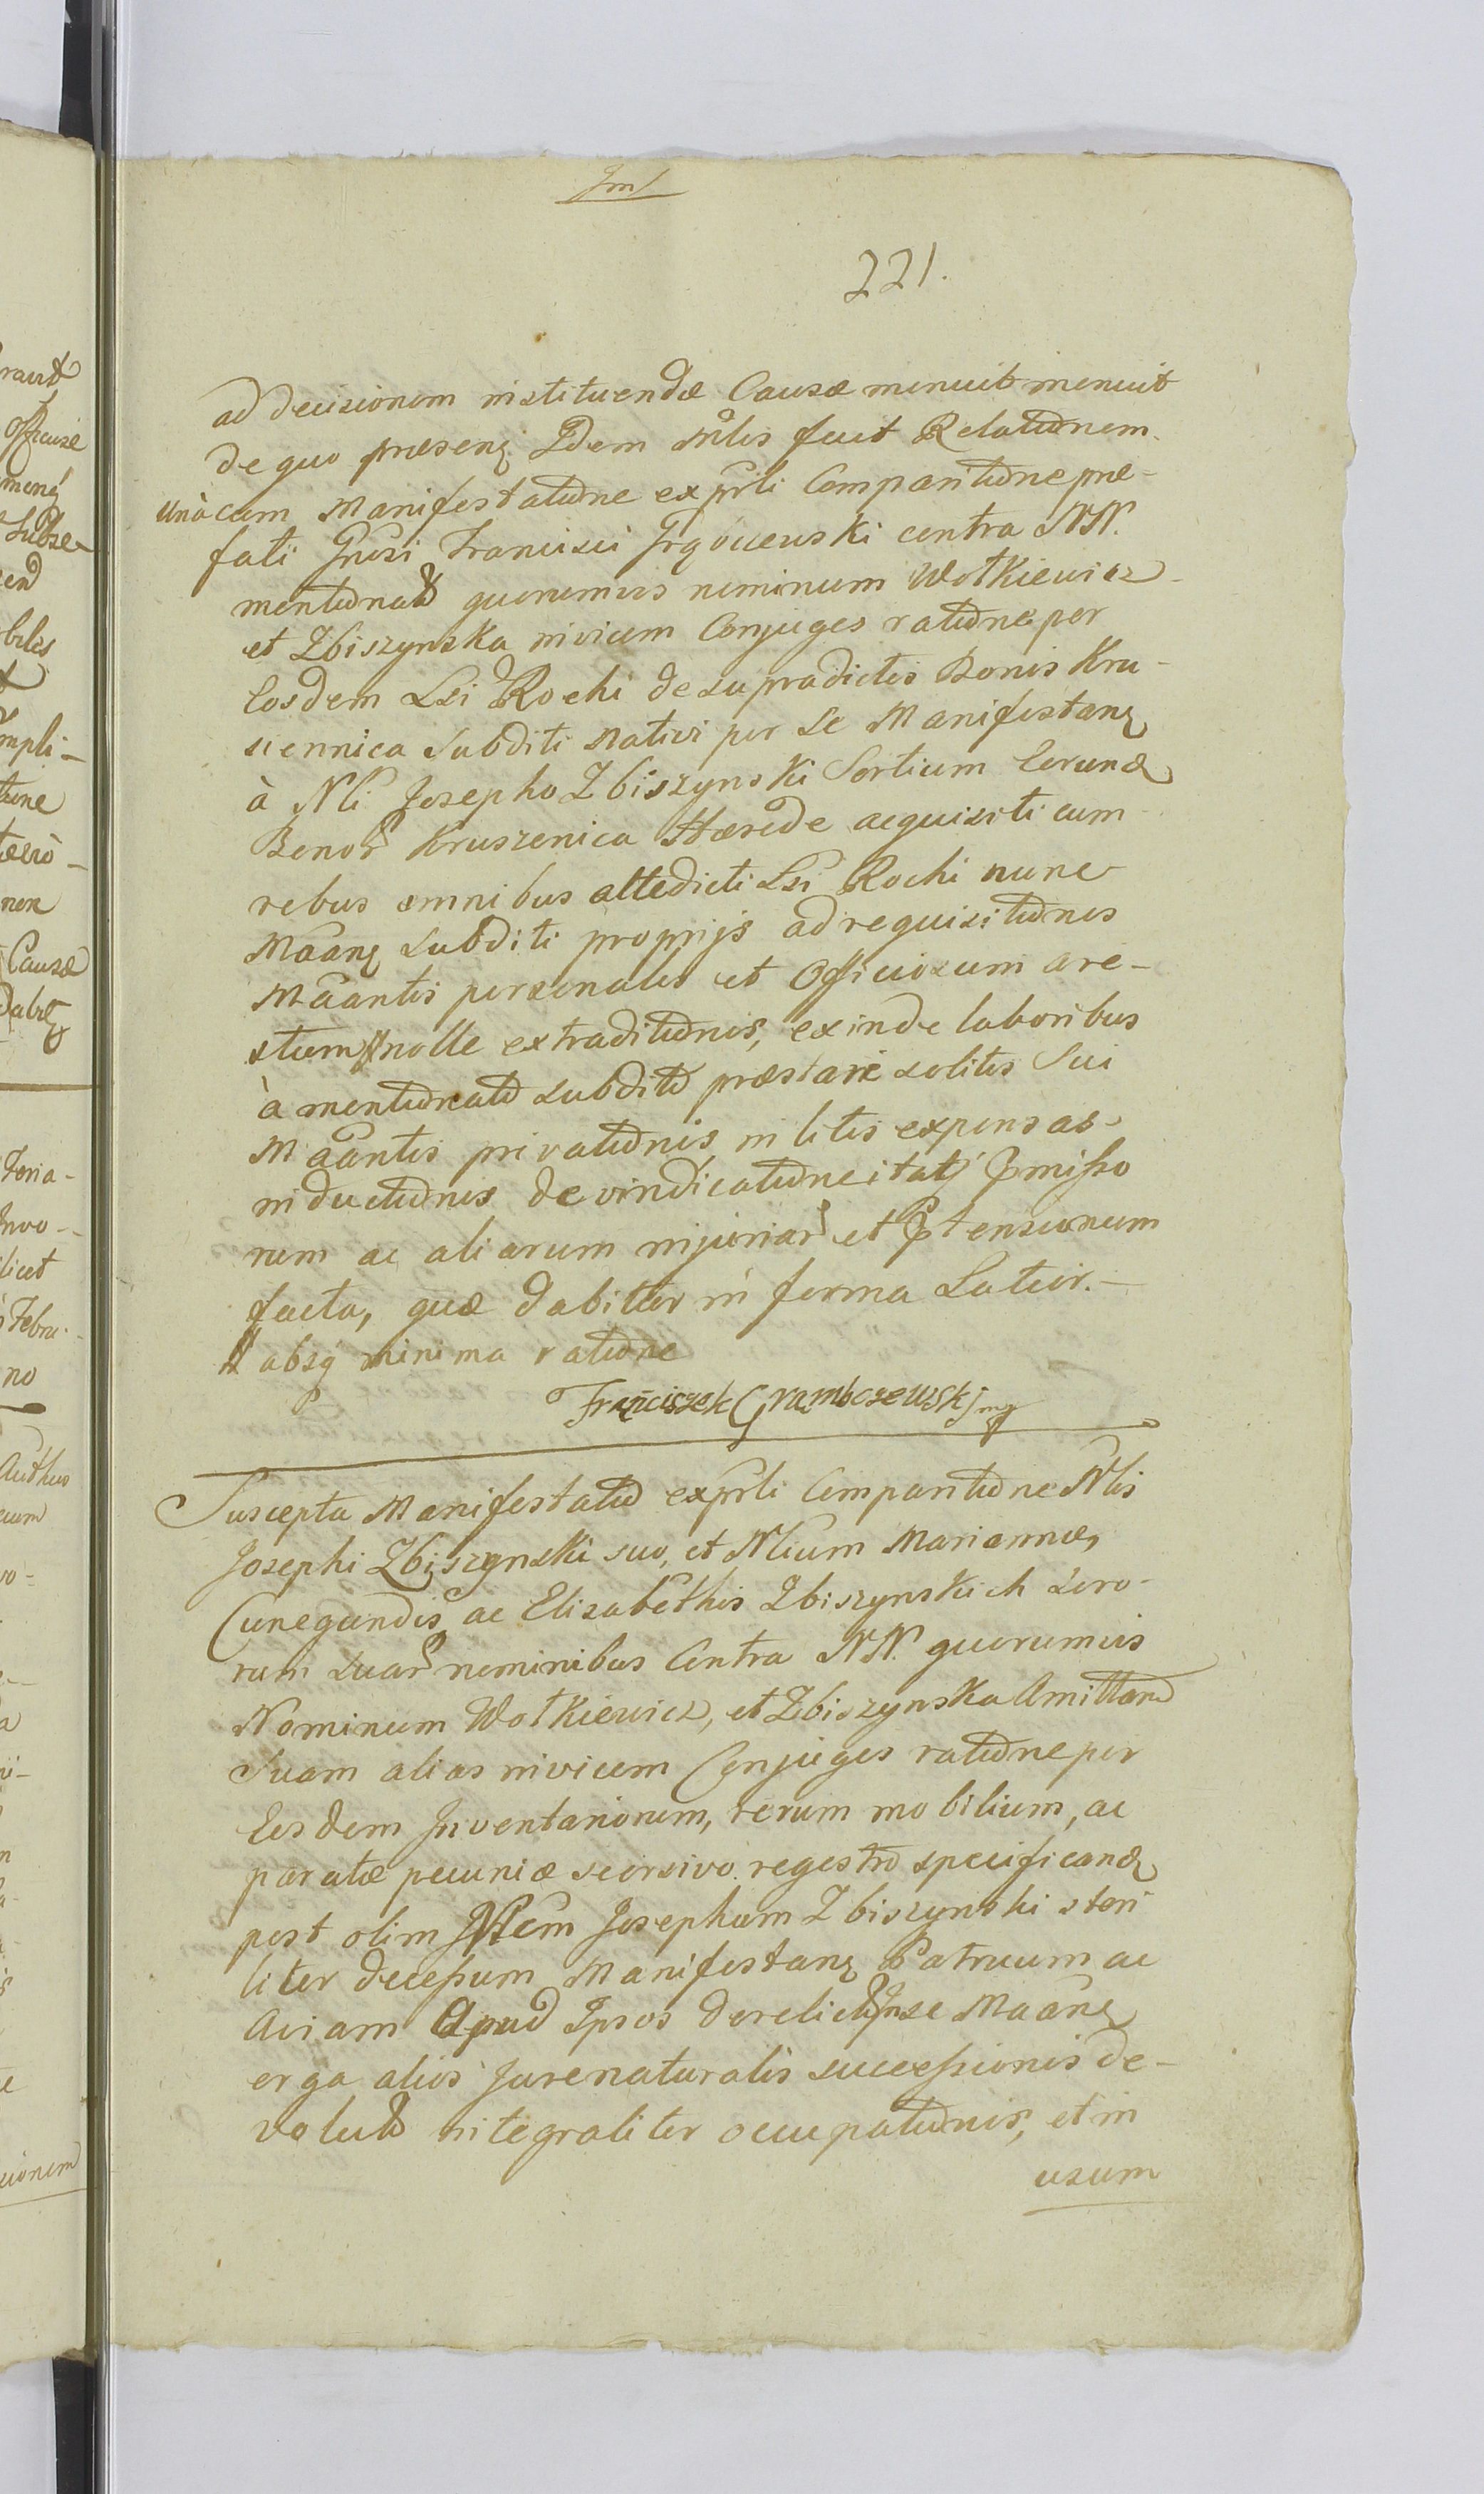 221.
ad decisionem instituendæ Causæ menuit menuit
de quo præsenq Idem Mlis fecit Relatiõnem
unà cum Manifestatiõne ex prli Comparitiõne præ-
fati Gnosi Francisci contra NN.
mentiõnat quorumvis nominum Wołkiewicz
et Zbiszynska invicem Conjuges ratiõne per
Eosdem Lsi Rochi de supradictis Bonis Kru-
siennica Subditi Nativi per se Manifestanq
à Nli Josepho Zbiszynski Sortium Eorund
Bonor Kruszenica Hærede acquisiti cum
rebus omnibus attedicti Lsi Rochi nunc
Mãanq Subditi proprijs ad requisitiõnes
Mãantis personales et Officiosum are-
stum # nolle extraditiõnis, exinde laboribus
à mentiõnato subdito præstari solitis Sui
Mãantis privatiõnis, in litis expensas
inductiõnis de vindicatiõneitatj Pmisso
rum ac aliarum injuriar et Ptensionum
facta, quæ dabittur in forma Latior.
# absq minima ratiõne
Franciszek Grambczewski mp
Suscepta Manifestatio ex prli Comparitiõne Nlis
Josephi Zbiszynski suo, et Nlium Mariannæ,
Cunegundis, ac Elisabethis Zbiszynskich Soro-
rum suar nominibus Contra NN. quorumvis
Nominum Wołkiewicz, et Zbiszynska Amittam
Suam alias invicem Conjuges ratiõne per
Eosdem Inventariorum, rerum mobilium, ac
paratæ pecuniæ seorsivo regestro specificand
post olim Josephum Zbiszynski steri
liter decessum Manifestanq Patruum ac
Aviam Apud Ipsos derelict In se Mãanq
erga alios Jure naturalis successionis de-
volut integraliter occupatiõnis, et in
usum